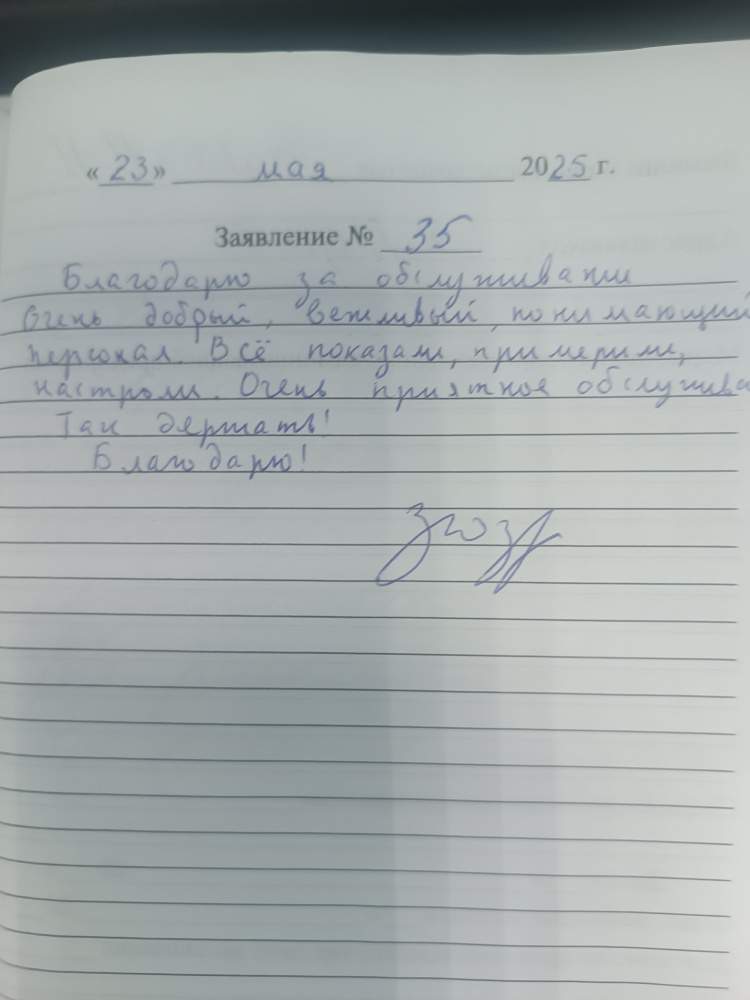 «23» мая 2025 г.
Заявление № 35
Благодарю за обслуживание
Очень добрый, вежливый, понимающий
персонал. Всё показали, примерили,
настроили. Очень приятное обслужива
Так держать!
Благодарю!